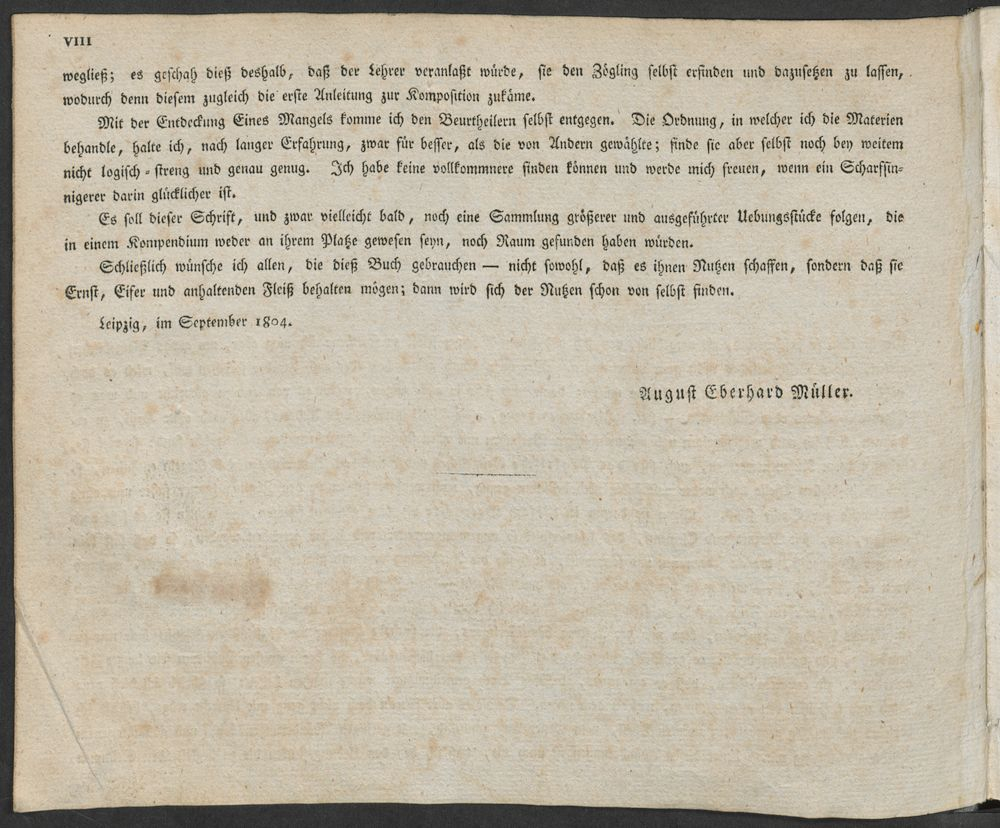 VIII
wegließ; es geschah dieß deshalb, daß der Lehrer veranlaßt würde, sie den Zögling selbst erfinden und dazusetzen zu lassen,
wodurch denn diesem zugleich die erste Anleitung zur Komposition zukäme.
Mit der Entdeckung Eines Mangels komme ich den Beurtheilern selbst entgegen. Die Ordnung, in welcher ich die Materien
behandle, halte ich, nach langer Erfahrung, zwar für besser, als die von Andern gewählte; finde sie aber selbst noch bey weitem
nicht logisch-streng und genau genug. Ich habe keine vollkommnere finden können und werde mich freuen, wenn ein Scharfsin-
nigerer darin glücklicher ist.
Es soll dieser Schrift, und zwar vielleicht bald, noch eine Sammlung größerer und ausgeführter Uebungsstücke folgen, die
in einem Kompendium weder an ihrem Platze gewesen seyn, noch Raum gefunden haben würden.
Schließlich wünsche ich allen, die dieß Buch gebrauchen — nicht sowohl, daß es ihnen Nutzen schaffen, sondern daß sie
Ernst, Eifer und anhaltenden Fleiß behalten mögen; dann wird sich der Nutzen schon von selbst finden.
Leipzig, im September 1804.
August Eberhard Müller.